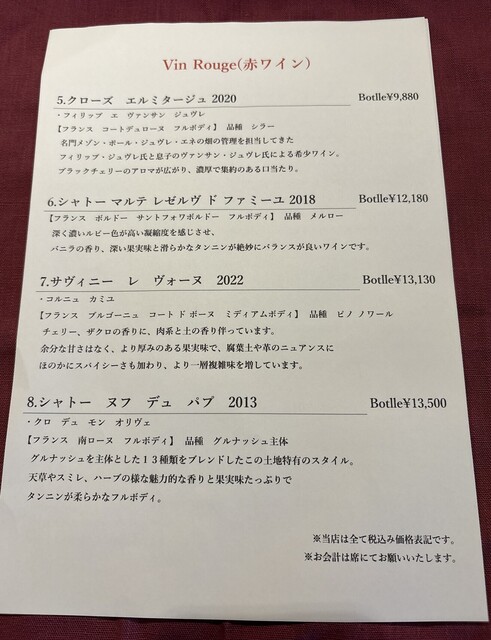 Vin Rouge(赤ワイン)
5.クローズ　エルミタージュ 2020　Botlle¥9,880
・フィリップ　エ　ヴァンサン　ジュヴレ
【フランス　コートデュローヌ　フルボディ】　品種　シラー
名門メゾン・ポール・ジュヴレ・エネの畑の管理を担当してきた
フィリップ・ジュヴレ氏と息子のヴァンサン・ジュヴレ氏による希少ワイン。
ブラックチェリーのアロマが広がり、濃厚で集約のある口当たり。
6.シャトー マルテ レゼルヴ ド ファミーユ 2018　Botlle¥12,180
【フランス　ボルドー　サントフォワボルドー　フルボディ】　品種　メルロー
深く濃いルビー色が高い凝縮度を感じさせ、
バニラの香り、深い果実味と滑らかなタンニンが絶妙にバランスが良いワインです。
7.サヴィニー　レ　ヴォーヌ　2022　Botlle¥13,130
・コルニュ　カミユ
【フランス　ブルゴーニュ　コート ド ボーヌ　ミディアムボディ】　品種　ピノ ノワール
チェリー、ザクロの香りに、肉系と土の香り伴っています。
余分な甘さはなく、より厚みのある果実味で、腐葉土や革のニュアンスに
ほのかにスパイシーさも加わり、より一層複雑味を増しています。
8.シャトー　ヌフ　デュ　パプ　2013　Botlle¥13,500
・クロ　デュ　モン　オリヴェ
【フランス　南ローヌ　フルボディ】　品種　グルナッシュ主体
グルナッシュを主体とした１３種類をブレンドしたこの土地特有のスタイル。
天草やスミレ、ハーブの様な魅力的な香りと果実味たっぷりで
タンニンが柔らかなフルボディ。
※当店は全て税込み価格表記です。
※お会計は席にてお願いいたします。